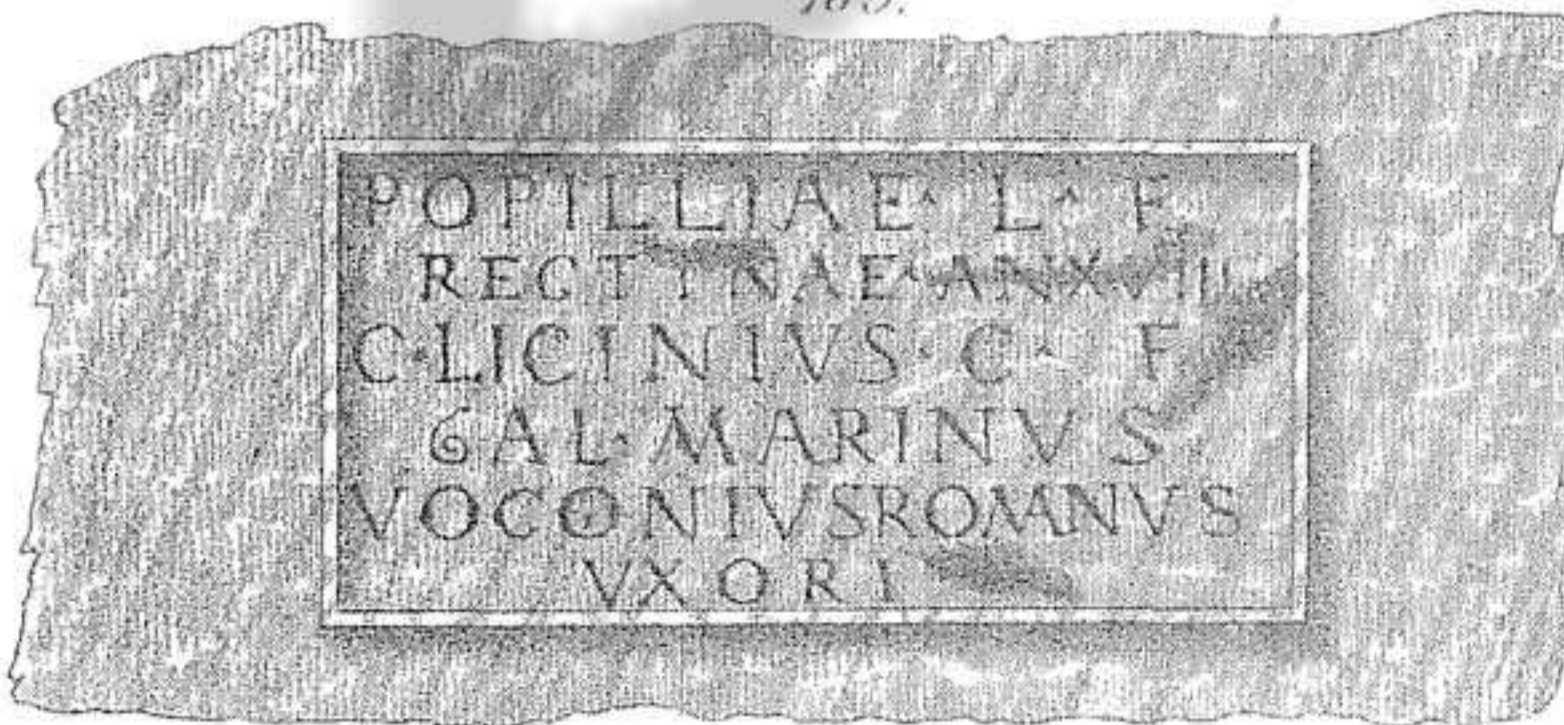 POPILLIAE· L· F
RECTINAE· ANXVIII
C·LICINIVS· C· F
GAL· MARINVS
VOCONIVSROMNVS
VXORI